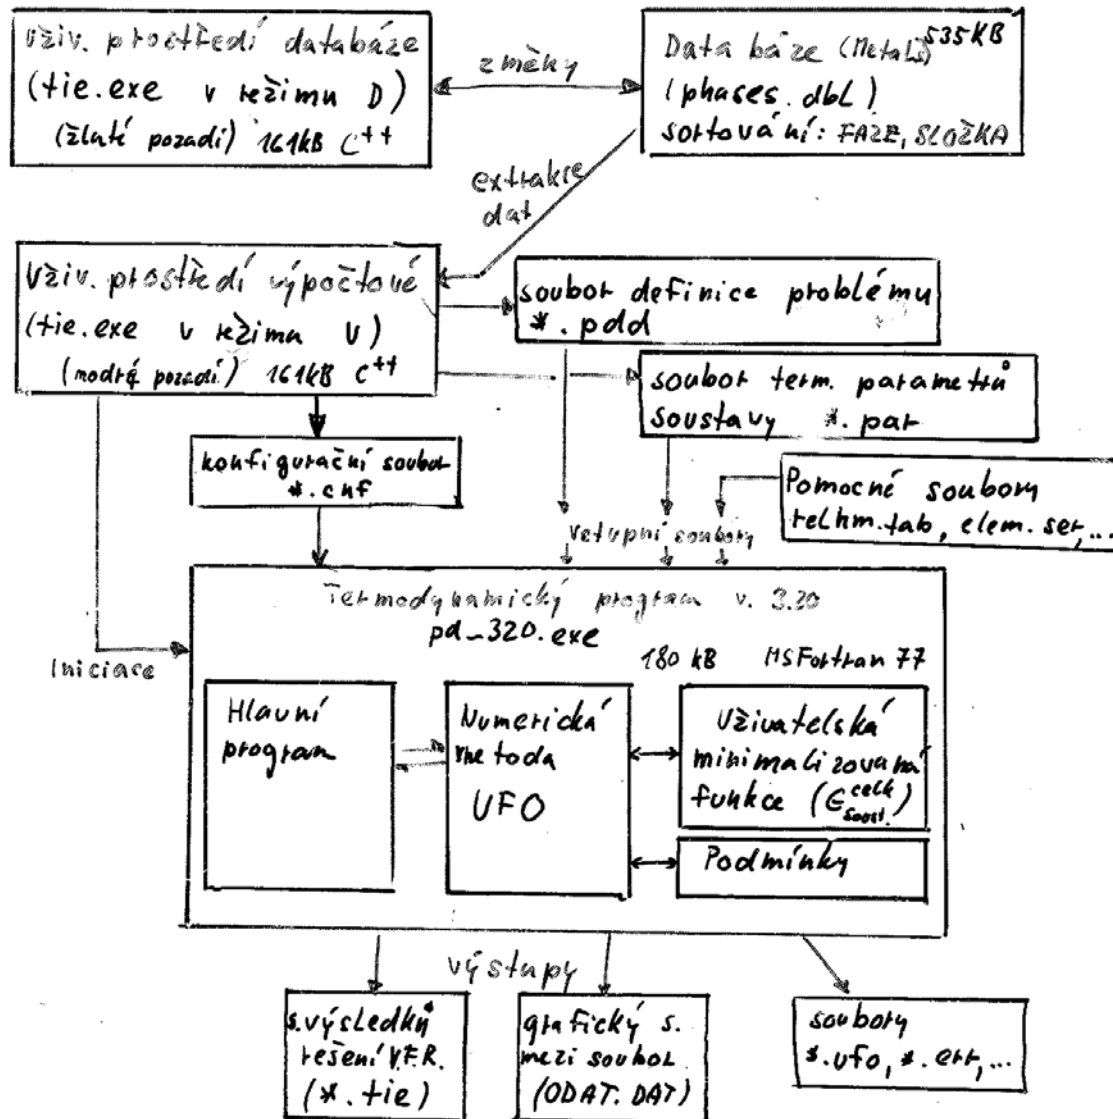 Uživ. prostředí databáze
(tie.exe v režimu D)
(žluté pozadí) 161kB C++
změny
Data báze (Metals) 535KB
(phases.dbL)
sortování: FÁZE, SLOŽKA
extrakce
dat
Uživ. prostředí výpočtové
(tie.exe v režimu V)
(modré pozadí) 161kB C++
soubor definice problému
*.pdd
soubor term. parametrů
soustavy *.par
konfigurační soubor
*.cnf
Pomocné soubory
relhm.tab, elem.ser,...
Vstupní soubory
Termodynamický program v. 3.20
pd_320.exe
180 kB MSFortran 77
Iniciace
Hlavní
program
Numerická
metoda
UFO
Uživatelská
minimalizovaná
funkce (G celk soust.)
Podmínky
výstupy
s.výsledků
řešení V.F.R.
(*.tie)
grafický s.
mezi soubor
(ODAT.DAT)
soubory
*.ufo, *.err,...